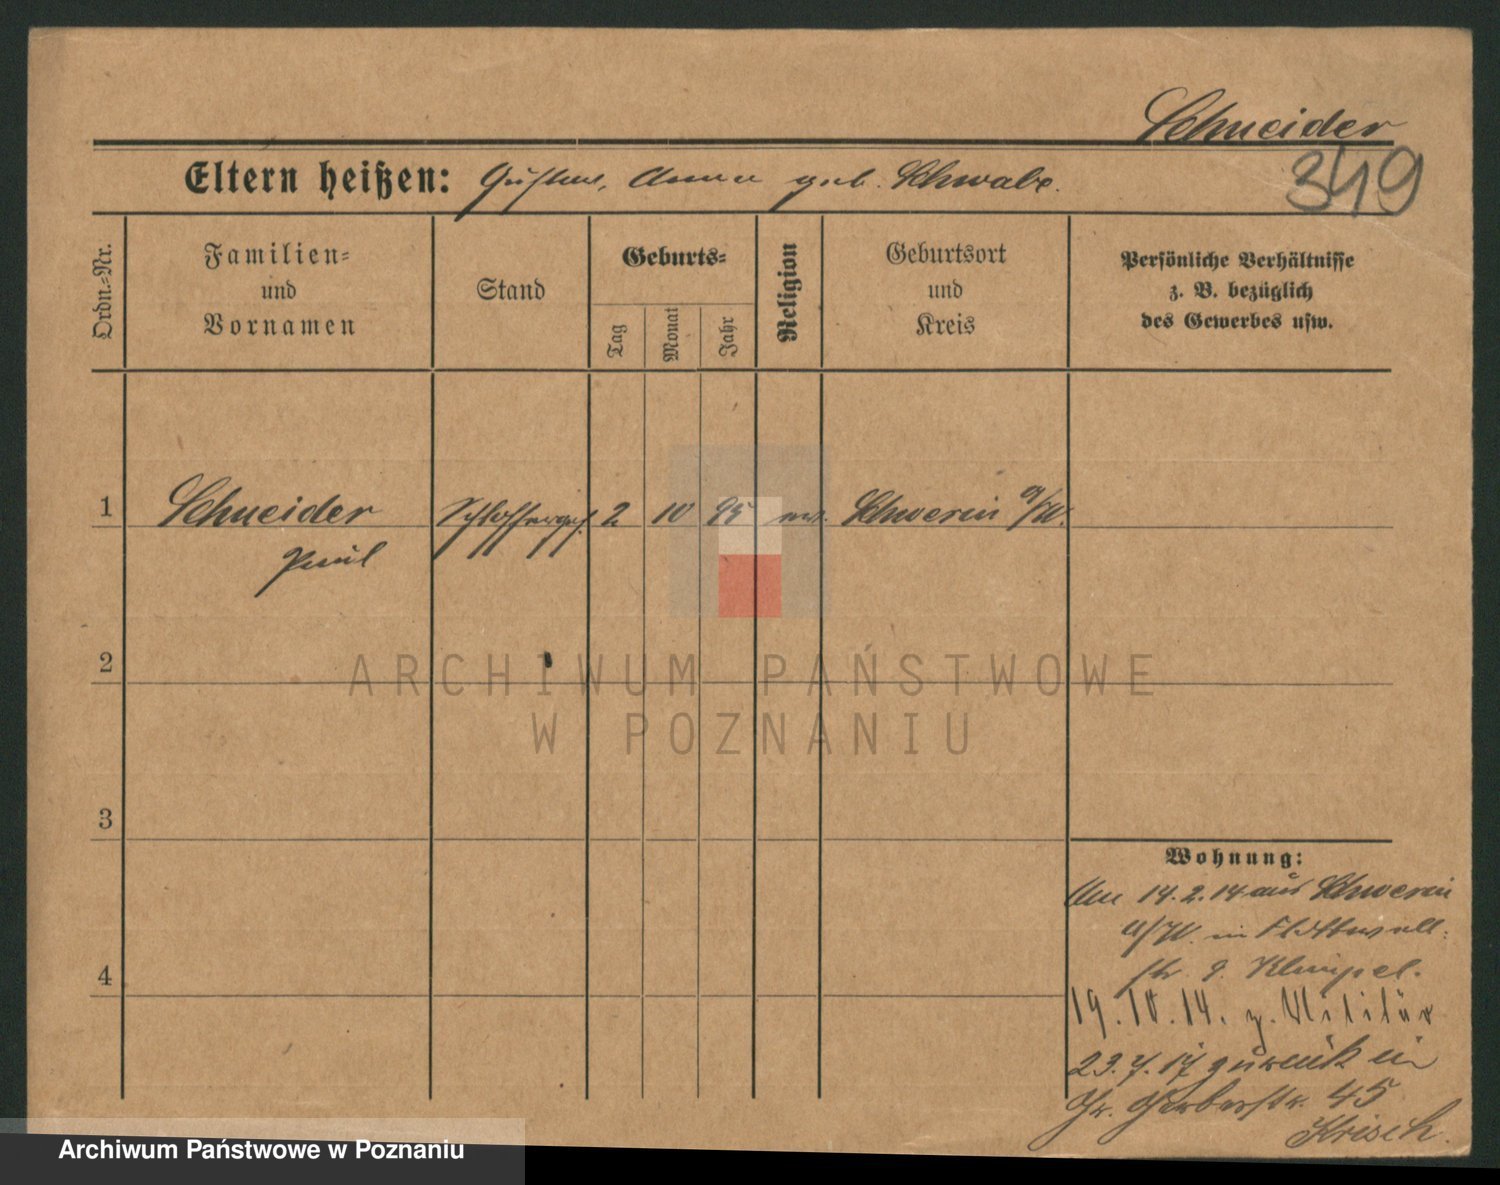 Schneider
349
Eltern heißen: Gustav, Anna geb. Schwabe.
Ordn.=Nr.
Familien=
und
Vornamen
Stand
Geburts=
Tag
Monat
Jahr
Religion
Geburtsort
und
Kreis
Persönliche Verhältnisse
z. B. bezüglich
des Gewerbes usw.
1 Schneider Schlosserges. 2 10 95 Schwerin a/W.
Paul
2
3
4
Wohnung:
Am 14.2.14 aus Schwerin
a/W. in Flottwell-
str. 9. Klimpel.
19.10.14. z. Militär
23.7.17 zurück in
Gr. Gerberstr. 45
Krisch.
ARCHIWUM PAŃSTWOWE
W POZNANIU
Archiwum Państwowe w Poznaniu